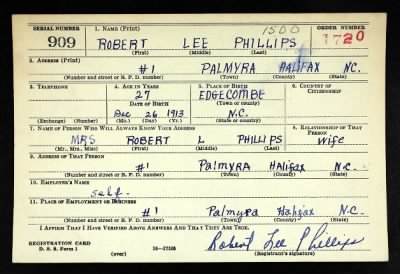 SERIAL NUMBER 1. NAME (Print) 1500 ORDER NUMBER
909 ROBERT LEE PHILLIPS 1720
(First) (Middle) (Last)
2. ADDRESS (Print)
#1 PALMYRA HALIFAX N.C.
(Number and street or R. F. D. number) (Town) (County) (State)
3. TELEPHONE 4. AGE IN YEARS 5. PLACE OF BIRTH 6. COUNTRY OF CITIZENSHIP
27 EDGECOMBE
DATE OF BIRTH (Town or county)
Dec 26 1913 N.C.
(Exchange) (Number) (Mo.) (Day) (Yr.) (State or country)
7. NAME OF PERSON WHO WILL ALWAYS KNOW YOUR ADDRESS 8. RELATIONSHIP OF THAT PERSON
MRS ROBERT L PHILLIPS Wife
(Mr., Mrs., Miss) (First) (Middle) (Last)
9. ADDRESS OF THAT PERSON
#1 Palmyra Halifax N.C.
(Number and street or R. F. D. number) (Town) (County) (State)
10. EMPLOYER'S NAME
self.
11. PLACE OF EMPLOYMENT OR BUSINESS
#1 Palmyra Halifax N.C.
(Number and street or R. F. D. number) (Town) (County) (State)
I AFFIRM THAT I HAVE VERIFIED ABOVE ANSWERS AND THAT THEY ARE TRUE.
REGISTRATION CARD Robert Lee Phillips
D. S. S. Form 1 (over) 16—17105 (Registrant's signature)